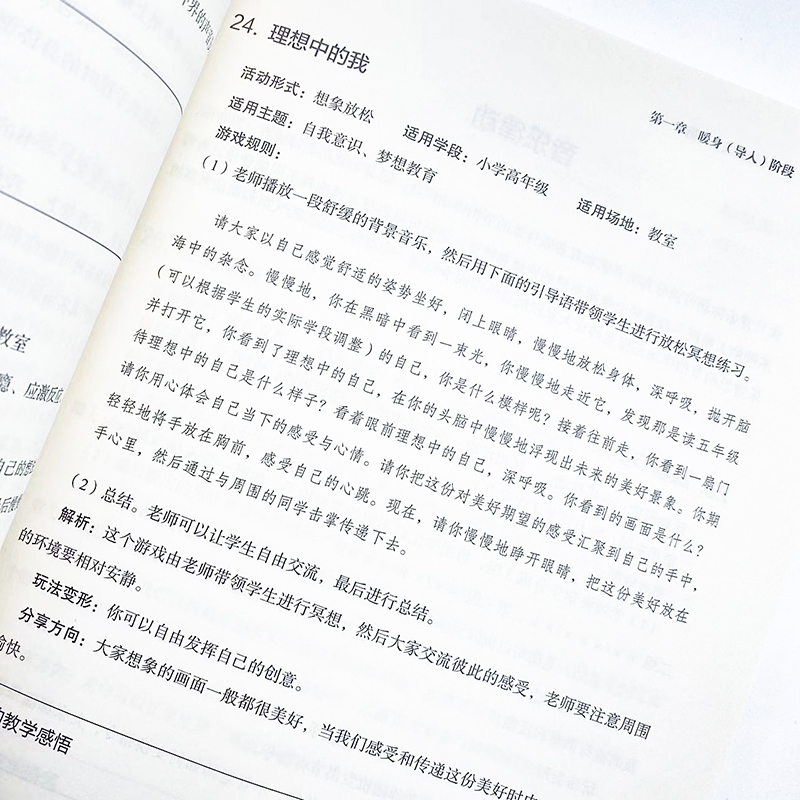 教室
应激反应
第一章 暖身（导入）阶段
24. 理想中的我
活动形式：想象放松 适用学段：小学高年级
适用主题：自我意识、梦想教育 适用场地：教室
游戏规则：
（1）老师播放一段舒缓的背景音乐，然后用下面的引导语带领学生进行放松冥想练习。
请大家以自己感觉舒适的姿势坐好，闭上眼睛，慢慢地放松身体，深呼吸，抛开脑
海中的杂念。慢慢地，你在黑暗中看到一束光，你慢慢地走近它，发现那是读五年级
（可以根据学生的实际学段调整）的自己，你是什么模样呢？接着往前走，你看到一扇门
并打开它，你看到了理想中的自己，在你的头脑中慢慢地浮现出未来的美好景象。你期
待理想中的自己是什么样子？看着眼前理想中的自己，深呼吸。你看到的画面是什么？
请你用心体会自己当下的感受与心情。请你把这份对美好期望的感受汇聚到自己的手中，
轻轻地将手放在胸前，感受自己的心跳。现在，请你慢慢地睁开眼睛，把这份美好放在
手心里，然后通过与周围的同学击掌传递下去。
（2）总结。老师可以让学生自由交流，最后进行总结。
解析：这个游戏由老师带领学生进行冥想，然后大家交流彼此的感受，老师要注意周围
的环境要相对安静。
玩法变形：你可以自由发挥自己的创意。
分享方向：大家想象的画面一般都很美好，当我们感受和传递这份美好时内
愉快。
的教学感悟